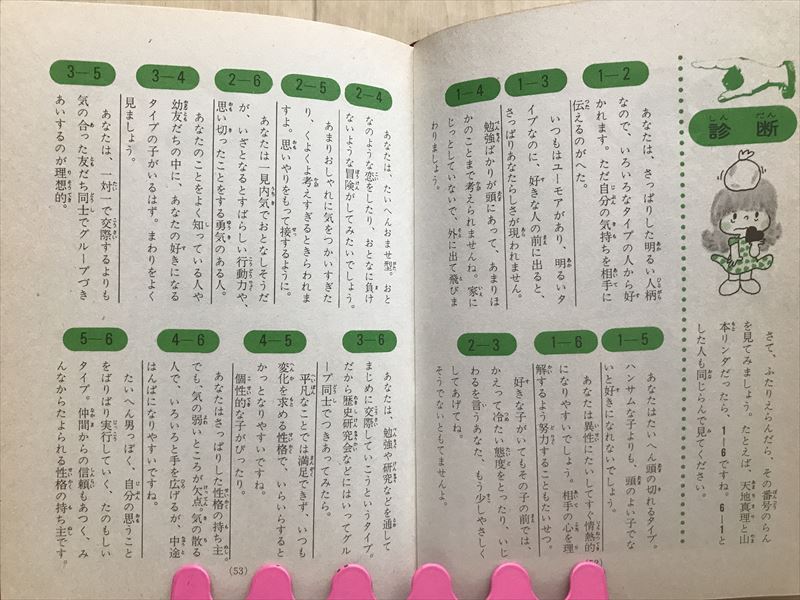 診断
しん だん
さて、ふたりえらんだら、その番号のらん
を見てみましょう。たとえば、天地真理と山
本リンダだったら、1―6ですね。6―1と
した人も同じらんで見てください。
1―2
あなたは、さっぱりした明るい人柄
なので、いろいろなタイプの人から好
かれます。ただ自分の気持ちを相手に
伝えるのがへた。
1―3
いつもはユーモアがあり、明るいタ
イプなのに、好きな人の前に出ると、
さっぱりあなたらしさが現われません。
1―4
勉強ばかりが頭にあって、あまりほ
かのことまで考えられませんね。家に
じっとしていないで、外に出て飛びま
わりましょう。
1―5
あなたはたいへん頭の切れるタイプ。
ハンサムな子よりも、頭のよい子でな
いと好きになれないでしょう。
1―6
あなたは異性にたいしてすぐ情熱的
になりやすいでしょう。相手の心を理
解するよう努力することもたいせつ。
2―3
好きな子がいてもその子の前では、
かえって冷たい態度をとったり、いじ
わるを言うあなた、もう少しやさしく
してあげてね。
そうでないともてませんよ。
2―4
あなたは、たいへんおませ型。おと
なのような恋をしたり、おとなに負け
ないような冒険がしてみたいでしょう。
2―5
あまりおしゃれに気をつかいすぎた
り、くよくよ考えすぎるときらわれま
すよ。思いやりをもって接するように。
2―6
あなたは一見内気でおとなしそうだ
が、いざとなるとすばらしい行動力や、
思い切ったことをする勇気のある人。
3―4
あなたのことをよく知っている人や
幼友だちの中に、あなたの好きになる
タイプの子がいるはず。まわりをよく
見ましょう。
3―5
あなたは、一対一で交際するよりも
気の合った友だち同士でグループづき
あいするのが理想的。
3―6
あなたは、勉強や研究などを通して
まじめに交際していこうというタイプ。
だから歴史研究会などにはいってグル
ープ同士でつきあってみたら。
4―5
平凡なことでは満足できず、いつも
変化を求める性格で、いらいらすると
かっとなりやすいですね。
個性的な子がぴったり。
4―6
あなたはさっぱりした性格の持ち主
でも、気の弱いところが欠点。気の散る
人で、いろいろと手を広げるが、中途
はんぱになりやすいですね。
5―6
たいへん男っぽく、自分の思うこと
をばりばり実行していく、たのもしい
タイプ。仲間からの信頼もあつく、み
んなからたよられる性格の持ち主です。
(53)